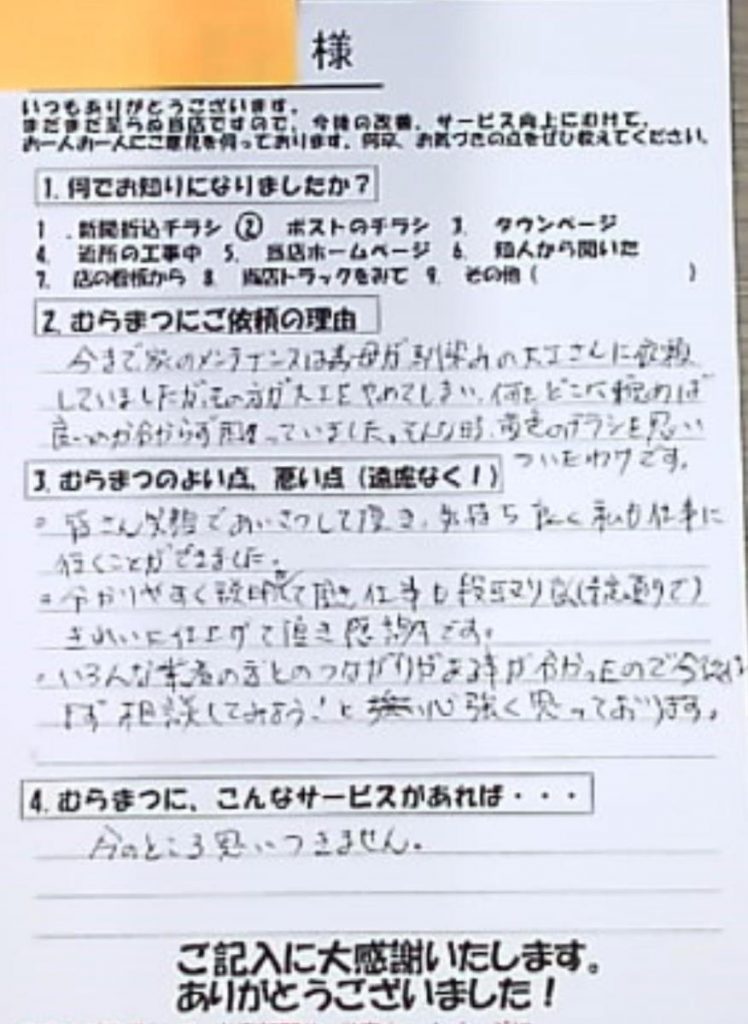 様
いつもありがとうございます。
まだまだ至らぬ当店ですので、今後の改善、サービス向上にむけて、
お一人お一人にご意見を伺っております。何卒、お気づきの点をぜひ教えてください。
1. 何でお知りになりましたか？
1 . 新聞折込チラシ ② ポストのチラシ 3. タウンページ
4. 近所の工事中 5. 当店ホームページ 6. 知人から聞いた
7. 店の看板から 8. 当店トラックをみて 9. その他 ( )
2. むらまつにご依頼の理由
今まで家のメンテナンスは義母が馴染みの大工さんに依頼
していましたが、その方が大工をやめてしまい、何をどこへ頼めば
良いのか分からず困っていました。そんな時、黄色のチラシを思い
ついたワケです。
3. むらまつのよい点、悪い点（遠慮なく！）
・皆さん笑顔であいさつして頂き、気持ち良く私も仕事に
行くことができました。
・分かりやすく説明をして頂き、仕事も段取り良く(予定通りで)
きれいに仕上げて頂き感謝です。
・いろんな業者の方とのつながりがある事が分かったので今後は
まず 相談してみよう！と 心強く思っております。
4. むらまつに、こんなサービスがあれば・・・
今のところ思いつきません。
ご記入に大感謝いたします。
ありがとうございました！